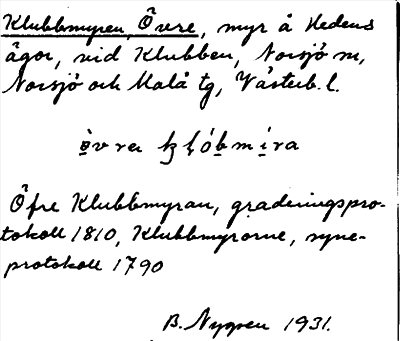 Klubbmyren, Övre, myr å Hedens
ägor, vid Klubben, Norsjö sn,
Norsjö och Malå tg, Västerb. l.
övrer kḷóbmi̱ra
Öfre Klubbmyran, graderingspro-
tokoll 1810, Klubbmyrorne, syne-
protokoll 1790
B. Nygren 1931.